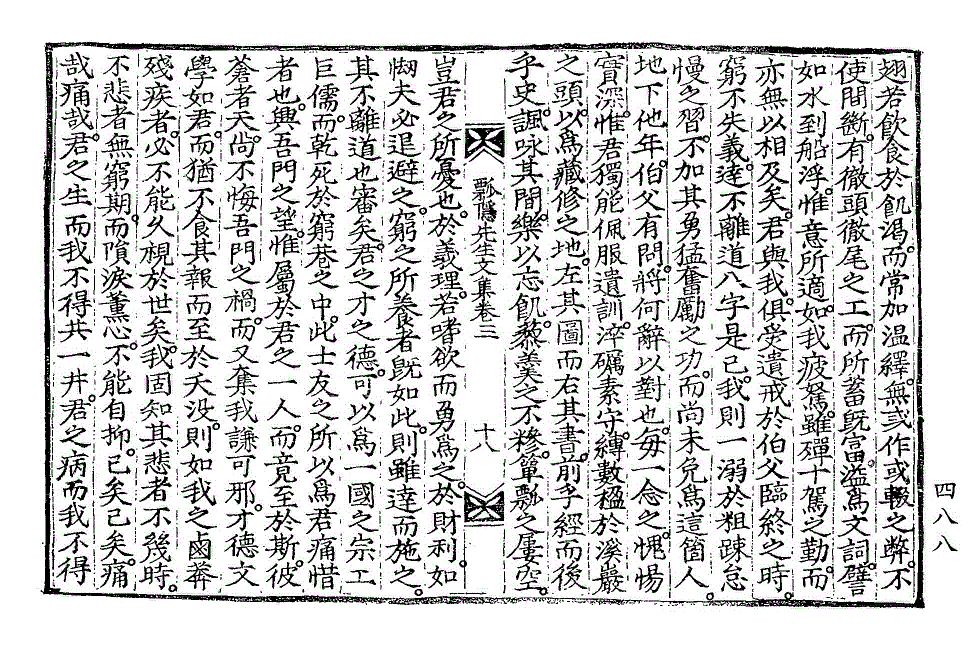 翅若飮食於飢渴。而常加温繹。無或作或輟之弊。不
使間斷。有徹頭徹尾之工。而所蓄旣富。溢爲文詞。譬
如水到船浮。惟意所適。如我疲駑。雖殫十駕之勤。而
亦無以相及矣。君與我。俱受遺戒於伯父臨終之時。
窮不失義。達不離道八字是已。我則一溺於粗踈怠
慢之習。不加其勇猛奮勵之功。而尙未免爲這箇人。
地下他年。伯父有問。將何辭以對也。每一念之。愧惕
實深。惟君獨能佩服遺訓。淬礪素守。縛數楹於溪巖
之頭。以爲藏修之地。左其圖而右其書。前乎經而後
乎史。諷咏其間。樂以忘飢。藜羹之不糝。簞瓢之屢空。
瓢隱先生文集卷三 十八
豈君之所憂也。於義理。若嗜欲而勇爲之。於財利。如
㤼夫必退避之。窮之所養者旣如此。則雖達而施之。
其不離道也審矣。君之才之德。可以爲一國之宗工
巨儒。而乾死於窮巷之中。此士友之所以爲君痛惜
者也。興吾門之望。惟屬於君之一人。而竟至於斯。彼
蒼者天。尙不悔吾門之禍。而又奪我謙可邪。才德文
學如君。而猶不食其報而至於夭没。則如我之鹵莽
殘疾者。必不能久視於世矣。我固知其悲者不幾時。
不悲者無窮期。而隕淚薰心。不能自抑。已矣已矣。痛
哉痛哉。君之生而我不得共一井。君之病而我不得
四八八